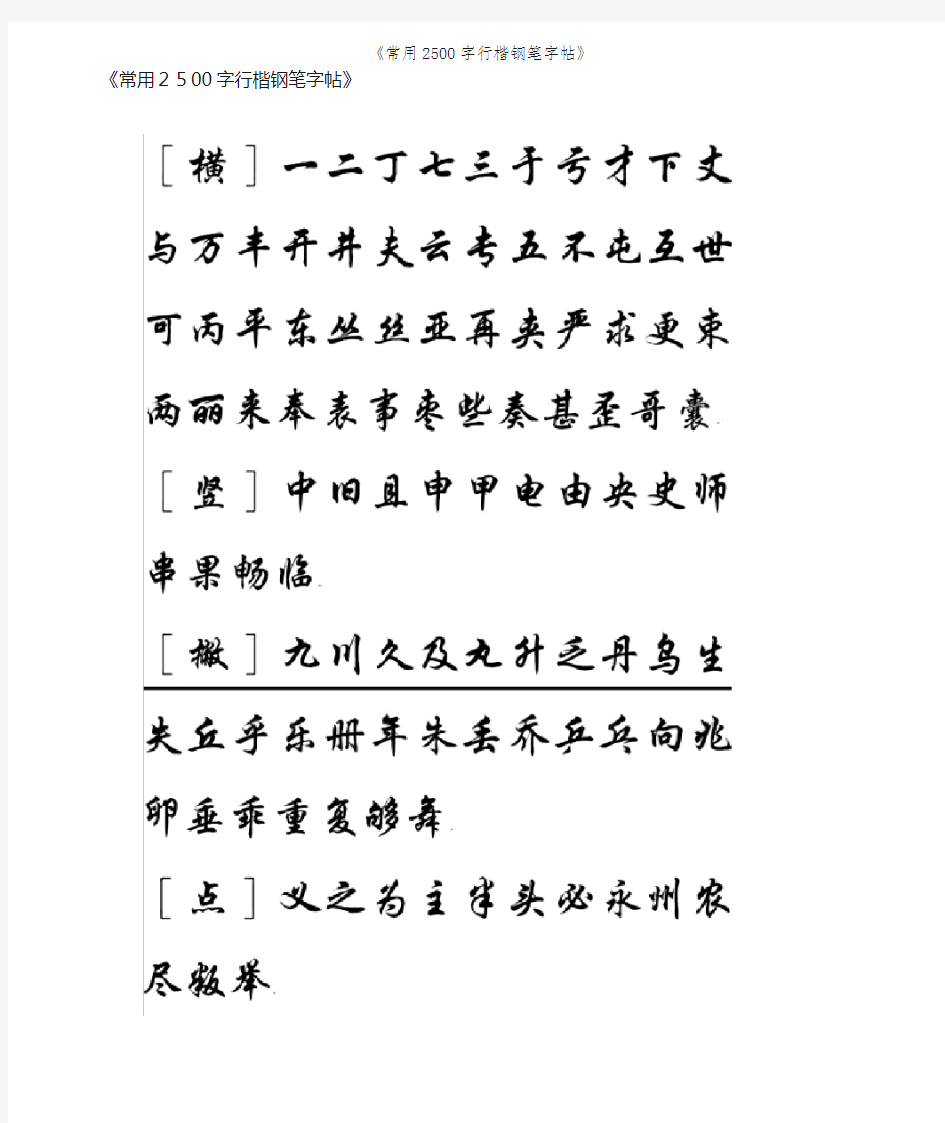 《常用2500字行楷钢笔字帖》
《常用２５00字行楷钢笔字帖》
[横]一二丁七三于亏才下丈
与万丰开井夫云专五不屯互世
可丙平东丛丝亚再夹严求更束
两丽来奉表事枣些奏甚歪哥囊.
[竖]中旧且申甲电由央史师
串果畅临.
[撇]九川久及丸升乏丹乌生
失丘乎乐册年朱丢乔乒乓向兆
卵垂乖重复够舞.
[点]义之为主半头必永州农
尽叛举.